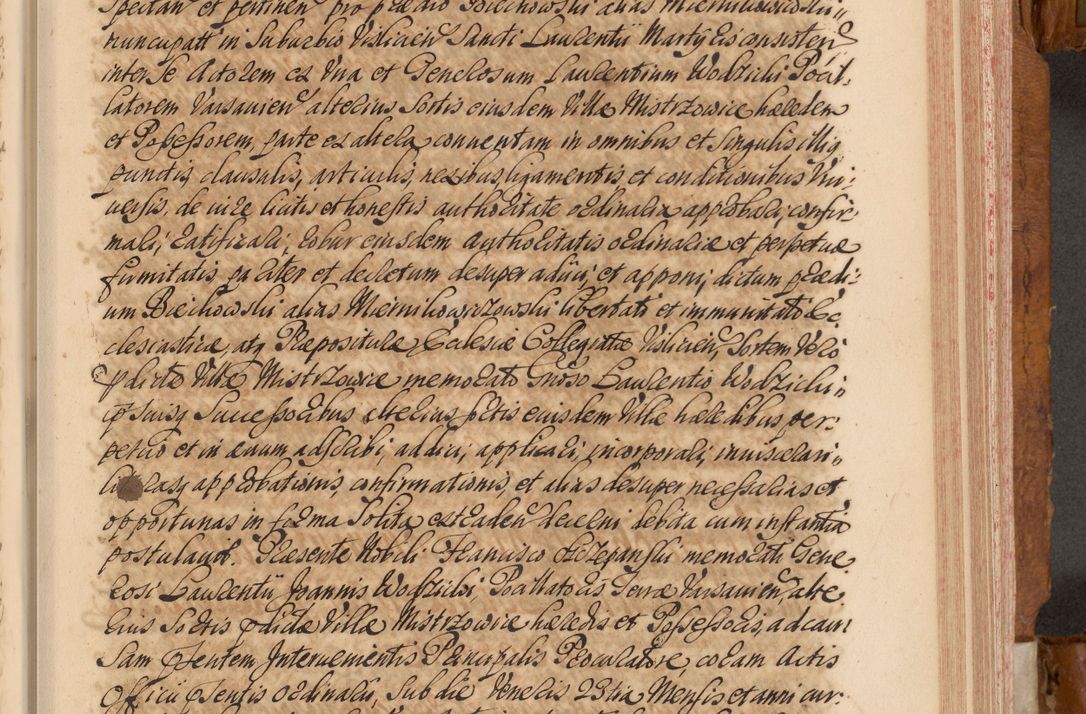 spectan et pertinen pro prædio Biechowski alias Miernikowiczowski
nuncupatt in Suburbio Vislicien Sancti Laurentii Martyris consisten
inter se Actorem ex Una et Generosum Laurentium Wodzicki Pocil
latorem Varsavien alterius Sortis eiusdem Villæ Mistrzowice hæredem
et Possessorem, parte ex altera conventam in omnibus et singulis illiq
punctis, clausulis, articulis, nexibus, ligamentis et conditionibus Uni
versis, de iure licitis et honestis authoritate ordinaria approbari, confir
mari, ratificari, robur eiusdem Authoritatis ordinariæ et perpetuæ
firmitatis pariter et decretum desuper adiici, et apponi, dictum prædi
um Biechowski alias Miernikowiczowski libertati et immunitati Ec
clesiasticæ, atq Præpositura Ecclesiæ Collegiatæ Vislicien, Sortem Vero
pdictæ Villæ Mistrzowice memorato Gnoso Laurentio Wodzicki
ipsiusq Successoribus alterius Sortis eiusdem Villæ hæredibus per
petuo et in ævum adscribi, addici, applicari, incorporari, inviscerari
literasq approbationis, confirmationis, et alias desuper necessarias et
opportunas in forma Solita extraden decerni debita cum instantia
postulavit. Præsente Nobili Francisco Szczepanski memorati Gene
rosi Laurentii Joannis Wodzicki Pocillatoris Terræ Varsavien, alte
rius Sortis pdictæ Villæ Mistrzowice hæredis et Possessoris, ad cau
sam psentem Intervenientis Principalis Procuratore, coram Actis
Officii psentis ordinarii, Sub die Veneris 23tia Mensis et anni cur